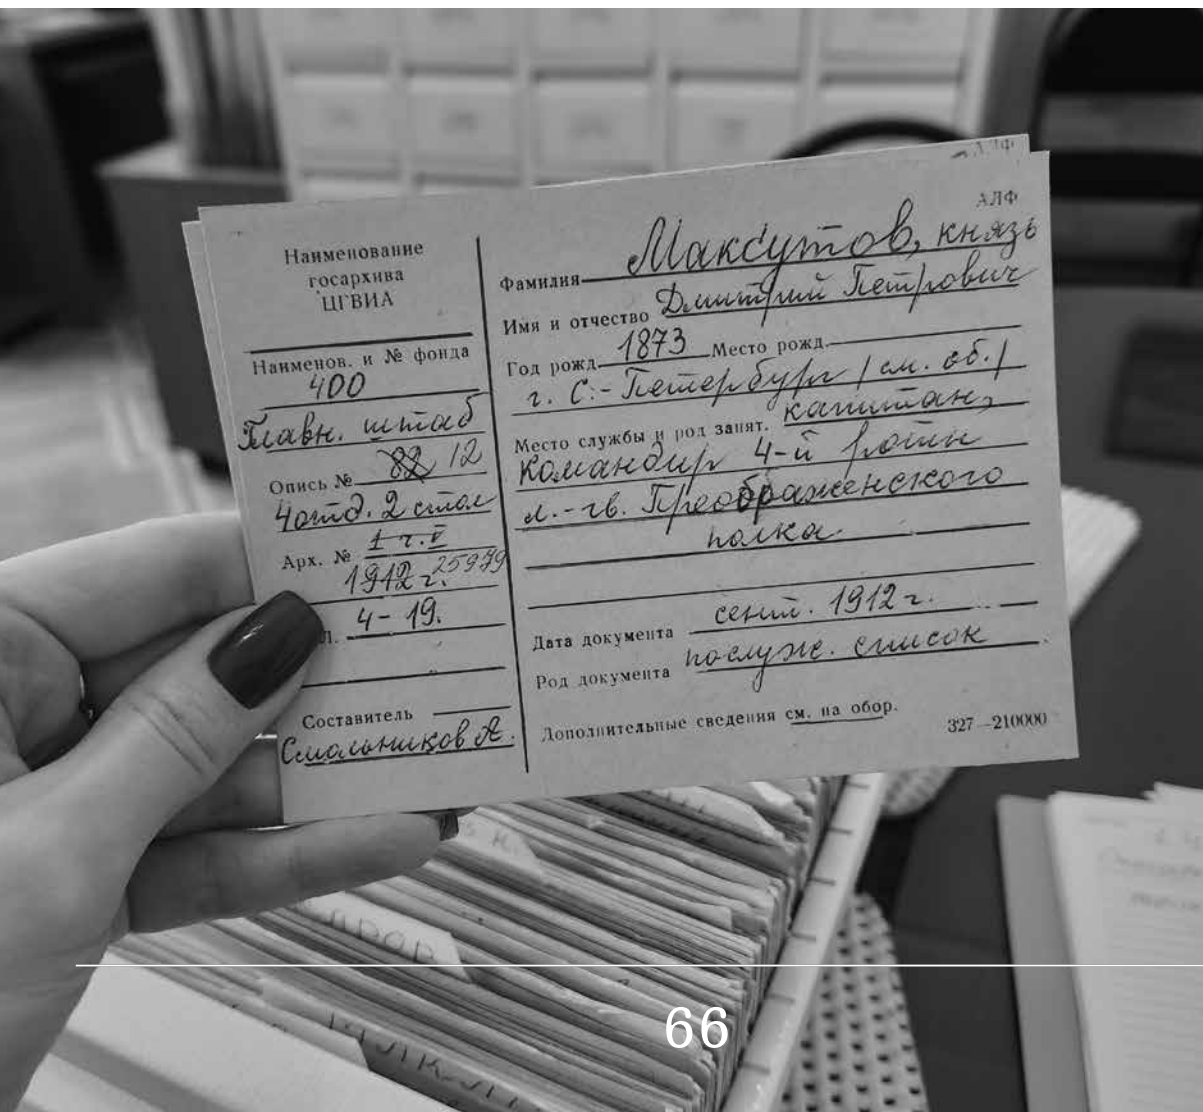 АЛФ
Наименование
госархива
ЦГВИА
Наименов. и № фонда
400
Главн. штаб
Опись № 82 12
4 отд. 2 стол
Арх. № 1 ч. V
1912 г. 25979
Л. 4-19.
Составитель
Смольников А.
АЛФ
Фамилия Максутов, князь
Имя и отчество Дмитрий Петрович
Год рожд. 1873 Место рожд.
г. С.-Петербург / см. об. /
Место службы и род занят. капитан,
командир 4-й роты
л.-гв. Преображенского
полка.
Дата документа сент. 1912 г.
Род документа послуж. список
Дополнительные сведения см. на обор.
327—210000
66